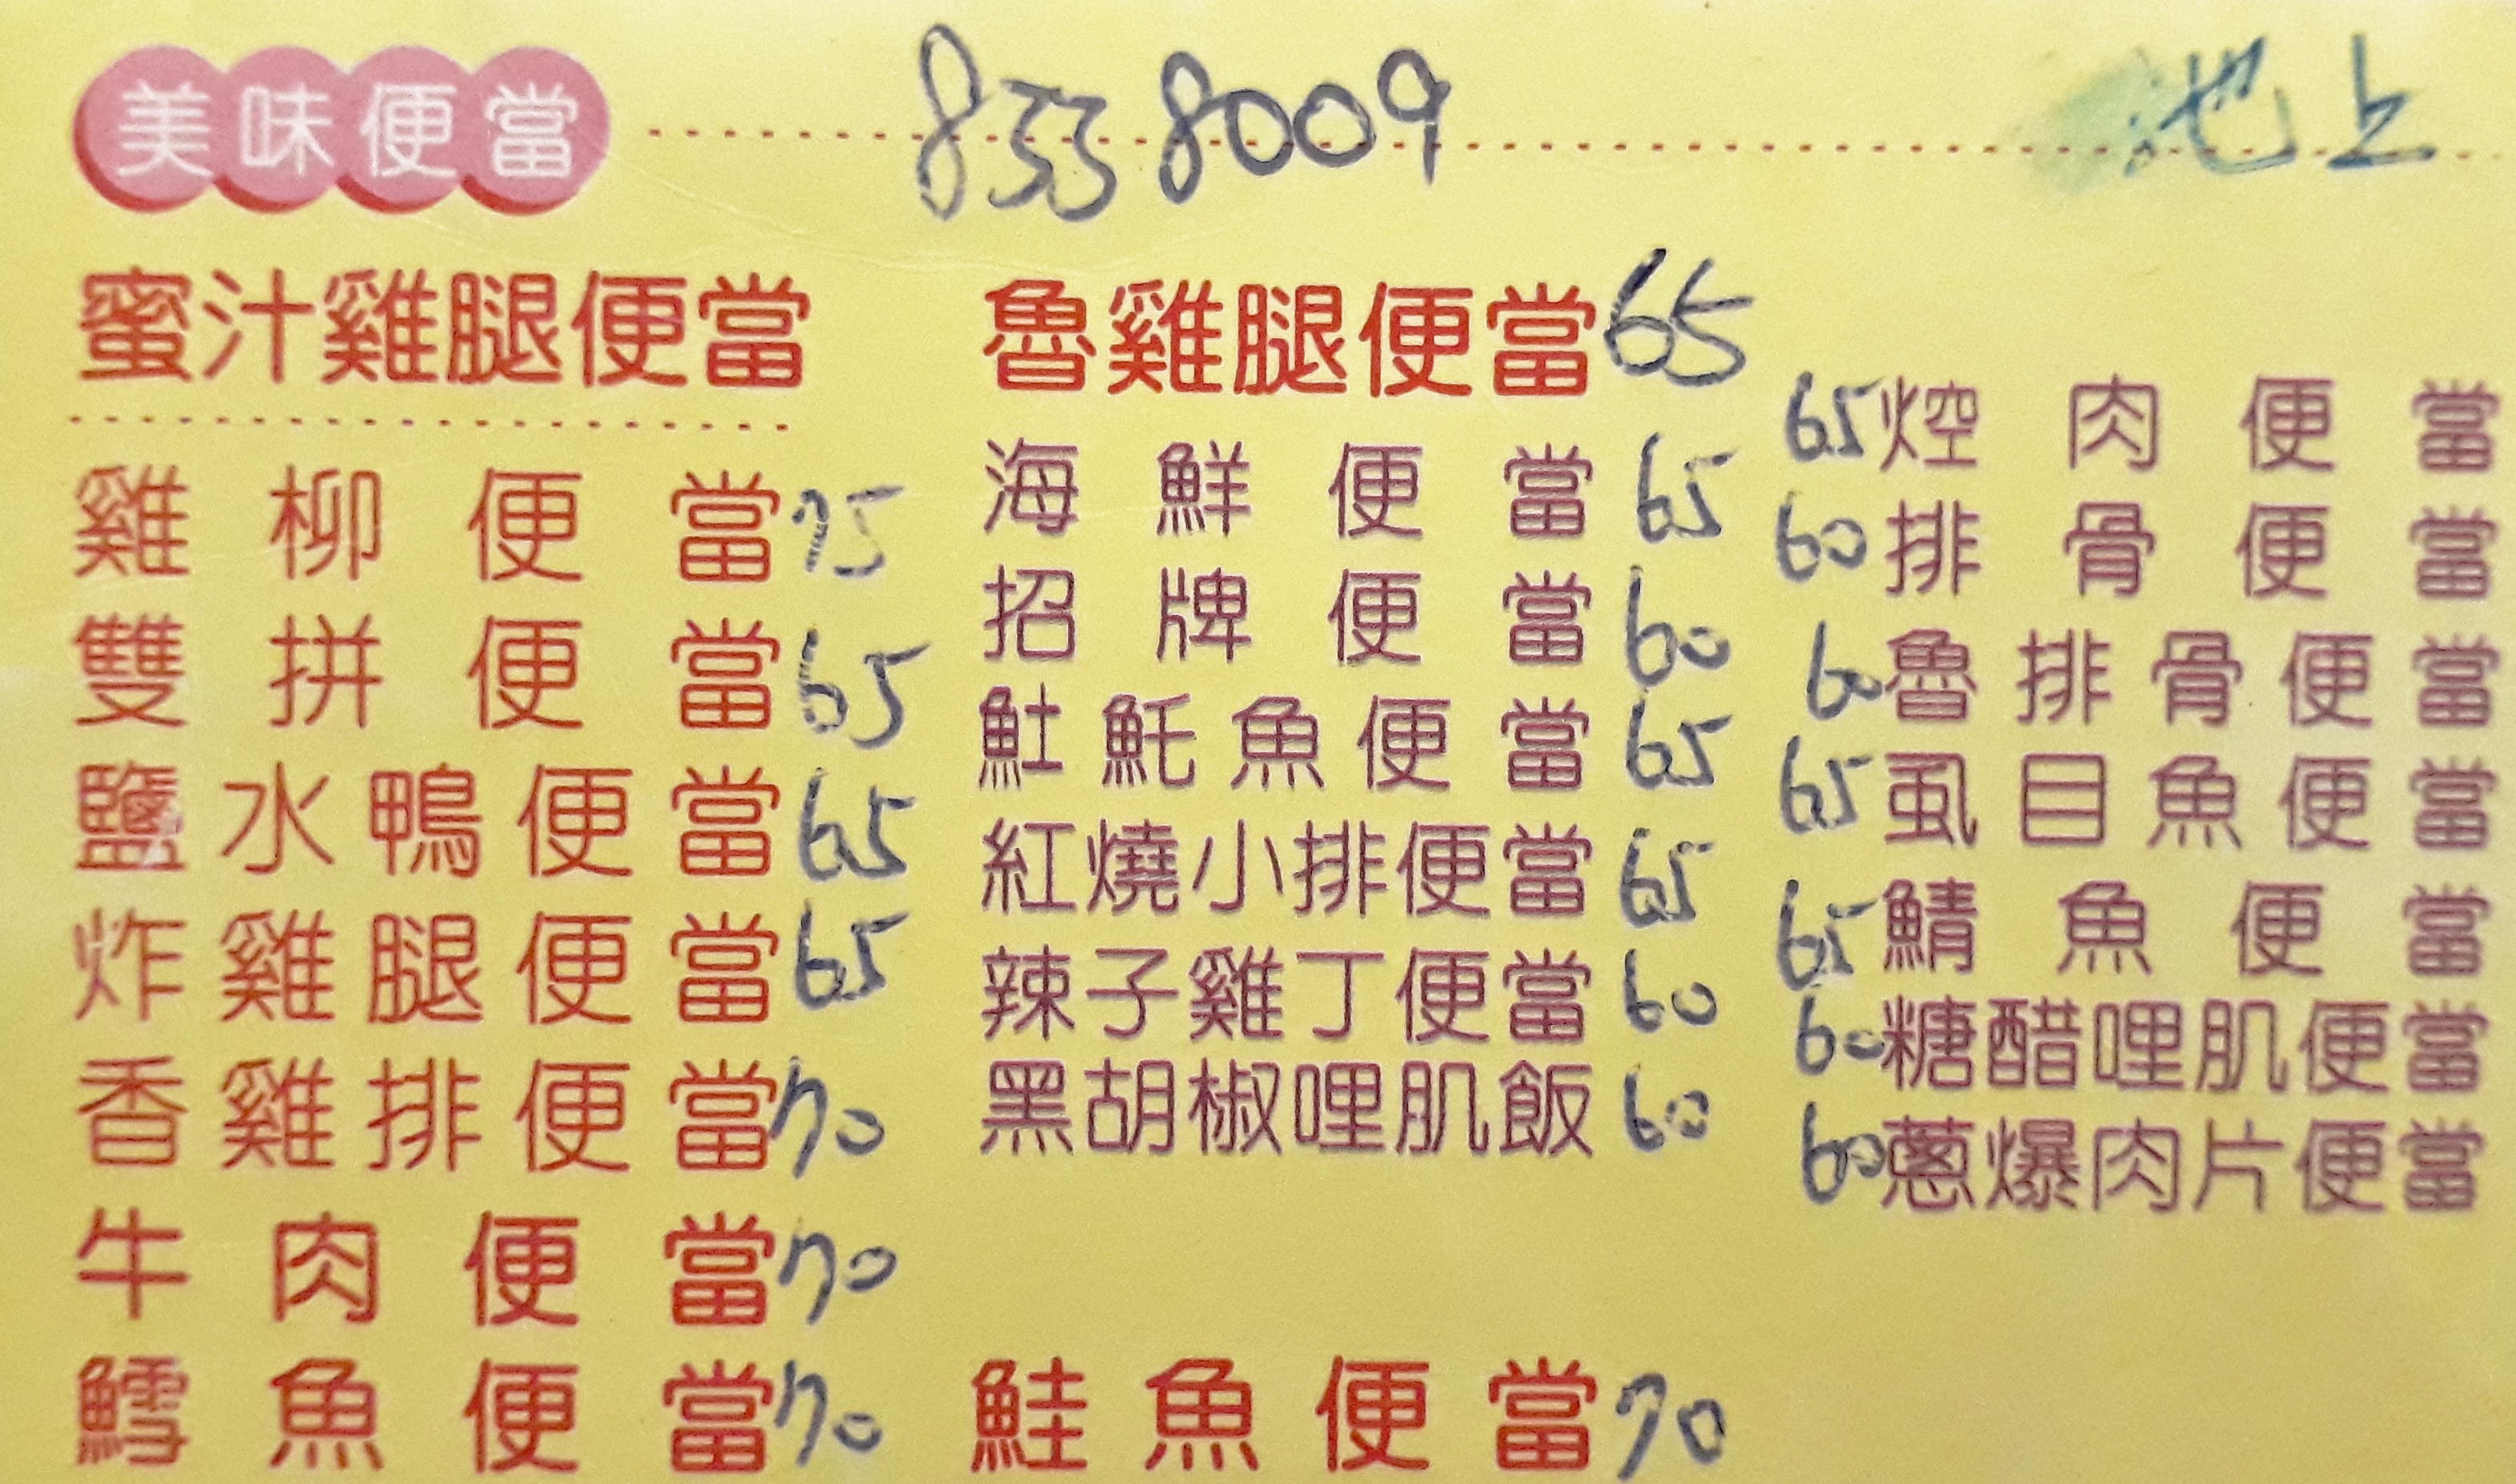 美味便當 8338009 池上
蜜汁雞腿便當
雞柳便當75
雙拼便當65
鹽水鴨便當65
炸雞腿便當65
香雞排便當70
牛肉便當70
鱈魚便當70
魯雞腿便當65
海鮮便當65
招牌便當60
魠魚便當65
紅燒小排便當65
辣子雞丁便當60
黑胡椒哩肌飯60
鮭魚便當70
65焢肉便當
60排骨便當
60魯排骨便當
65虱目魚便當
65鯖魚便當
60糖醋哩肌便當
60蔥爆肉片便當